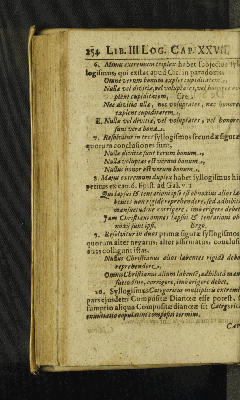 254 LIB. III LOG. CAP. XXVII.
6. Minus extremum triplex habet subjectus syl
logismus, qui extat apud Cic. in paradoxis.
Omne verum bonum explet cupiditatem,
Nulla vel divitiæ, vel voluptates, vel honores ex-
plent cupiditatem, Ergo,
Nec divitiæ ullæ, nec voluptates, nec honores
explent cupiditatem,
E. Nulla vel divitiæ, vel voluptates, vel honores
sunt vera bona.
7. Resolvitur in tres syllogismos secundæ figuræ
quorum conclusiones sunt,
Nulla divitiæ sunt verum bonum,
Nulla voluptas est verum bonum,
Nullus honor est verum bonum.
8. Majus extremum duplex habet syllogismus hic
petitus ex cap. 6. Epist. ad Gal. v. 1
Qui lapsus & tentationi ipse est obnoxius alios la-
bentes non rigidè reprehendere, sed adhibitâ
mansuetudine corrigere, imò erigere debet
Jam Christianus omnis lapsus & tentationi ob-
noxius ipse est. Ergo.
9. Resolvitur in duos primæ figuræ syllogismos
quorum alter negatus, alter affirmatus, conclusi-
ones colligunt istas.
Nullus Christianus alios labentes rigidè debet
reprehendere,
Omnis Christianus alium labentem, adhibitâ man-
suetudine, corrigere, imò erigere debet.
10. Syllogismus Categoricus multiplicis extremi
pars ejusdem Compositæ Dianœæ esse potest,
sumptio aliqua Compositæ dianœæ sit Categorica
enuntiatio copulatim compositi termini.